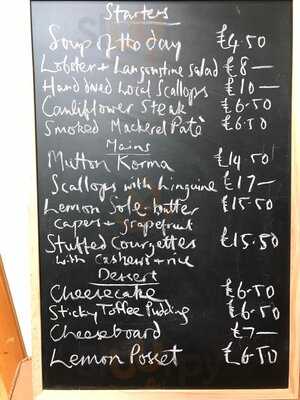 Starters
Soup of the day £4.50
Lobster + Langoustine salad £8—
Hand dived local Scallops £10—
Cauliflower Steak £6.50
Smoked Mackerel Patè £6.50
Mains
Mutton Korma £14.50
Scallops with linguine £17—
Lemon Sole butter £15.50
capers + grapefruit
Stuffed Courgettes £15.50
with Cashews + rice
Dessert
Cheesecake £6.50
Sticky Toffee Pudding £6.50
Cheeseboard £7—
Lemon Posset £6.50